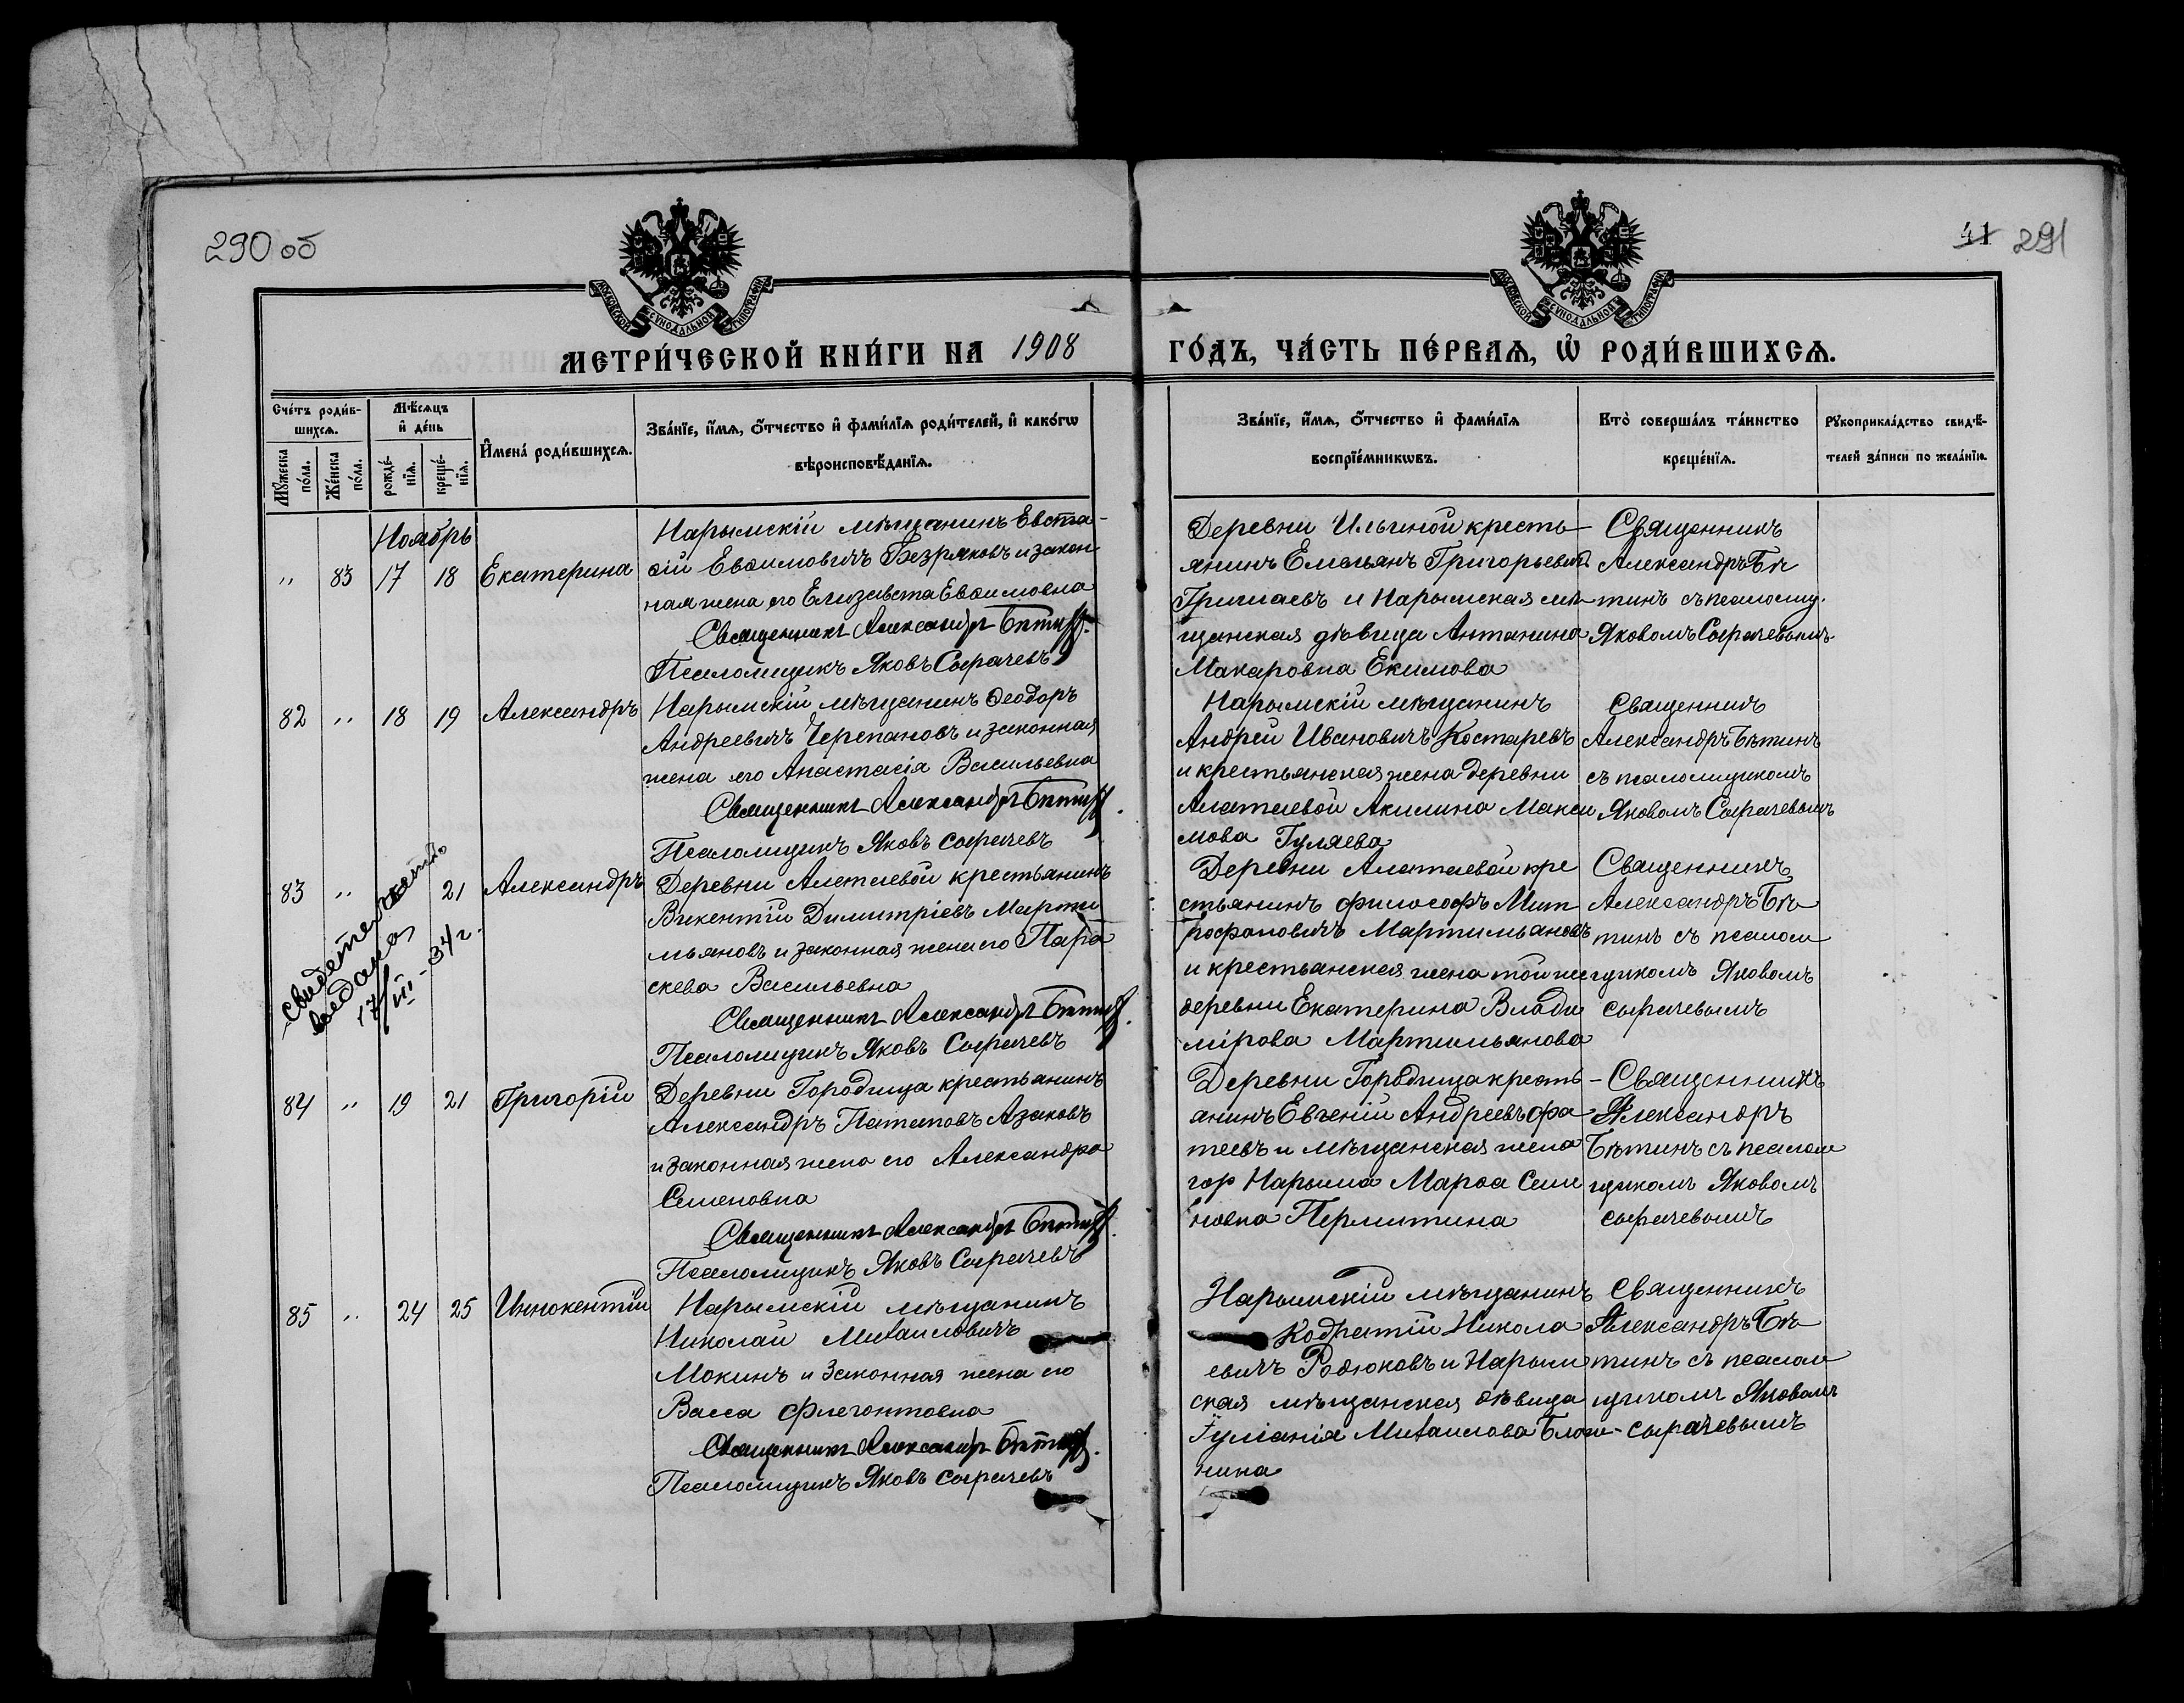 290 об
41 291
МОСКОВСКОЙ СѴНОДАЛЬНОЙ ТИПОГРАФІИ
МОСКОВСКОЙ СѴНОДАЛЬНОЙ ТИПОГРАФІИ
МЕТРИ́ЧЕСКОЙ КНИ́ГИ НА 1908
ГО́ДЪ, ЧА́СТЬ ПЕ́РВАѦ, Ѡ҆ РОДИ́ВШИХСѦ.
Сче́тъ роди́в-
шихсѧ.
Мꙋ́жеска по́ла.
Же́нска по́ла.
Мѣ́сѧцъ
и҆ де́нь
рожде́-
нїѧ.
креще́-
нїѧ.
И҆мена̀ роди́вшихсѧ.
Зва́нїе, и҆́мѧ, ѻ҆́тчество и҆ фами́лїѧ роди́телей, и҆ како́гѡ
вѣроисповѣ́данїѧ.
Зва́нїе, и҆́мѧ, ѻ҆́тчество и҆ фами́лїѧ
воспрїе́мникѡвъ.
Кто̀ соверша́лъ та́инство
креще́нїѧ.
Рꙋкоприкла́дство свидѣ́-
телей за́писи по жела́нїю.
Ноябрь
„ 83 17 18 Екатерина
Нарымскій мѣщанинъ Евста-
ѳій Евѳимовичъ Безряковъ и закон
ная жена его Елизавета Евѳимовна
Священникъ Александръ Бѣтинъ.
Псаломщикъ Яковъ Сырачевъ
Деревни Ильиной кресть-
янинъ Емельянъ Григорьевичъ
Гришаевъ и Нарымская мѣ-
щанская дѣвица Антанина
Макаровна Екимова
Священникъ
Александръ Бѣ
тинъ съ псаломщ.
Яковомъ Сырачевымъ
82 „ 18 19 Александръ
Нарымскій мѣщанинъ Ѳеодоръ
Андреевичъ Черепановъ и законная
жена его Анастасія Васильевна
Священникъ Александръ Бѣтинъ.
Псаломщикъ Яковъ Сырачевъ
Нарымскій мѣщанинъ
Андрей Ивановичъ Костаревъ
и крестьянская жена деревни
Алатаевой Акилина Макси
мова Гуляева
Священникъ
Александръ Бѣтинъ
съ псаломщикомъ
Яковомъ Сырачевымъ
83 „ 21 Александръ
свидетельство
выдано
17/III-34 г.
Деревни Алатаевой крестьянинъ
Викентій Димитріевъ Марти
мьяновъ и законная жена его Пара
скева Васильевна
Священникъ Александръ Бѣтинъ.
Псаломщикъ Яковъ Сырачевъ
Деревни Алатаевой кре
стьянинъ философъ Мит
рофановичъ Мартимьановъ
и крестьянская жена той же
деревни Екатерина Влади
мірова Мартимьянова
Священникъ
Александръ Бѣ
тинъ съ псалом
щикомъ Яковомъ
Сырачевымъ
84 „ 19 21 Григорій
Деревни Городища крестьанинъ
Александръ Патаповъ Азаковъ
и законная жена его Александра
Семеновна
Священникъ Александръ Бѣтинъ.
Псаломщикъ Яковъ Сырачевъ
Деревни Городища кресть-
анинъ Евгеній Андреевъ фа-
теевъ и мѣщанская жена
гор Нарыма Марѳа Семе
новна Пермитина
Священникъ
Александръ
Бѣтинъ съ псалом
щикомъ Яковомъ
Сырачевымъ
85 „ 24 25 Иннокентій
Нарымскій мѣщанинъ
Николай Михаиловичъ
Мокинъ и законная жена его
Васса Флегонтовна
Священникъ Александръ Бѣтинъ.
Псаломщикъ Яковъ Сырачевъ
Нарымскій мѣщанинъ
Кодратій Никола
евичъ Родюковъ и Нарым
ская мѣщанская дѣвица
Іуліанія Михаилова
нина
Священникъ
Александръ Бѣ
тинъ съ псалом
щикомъ Яковомъ
Сырачевымъ